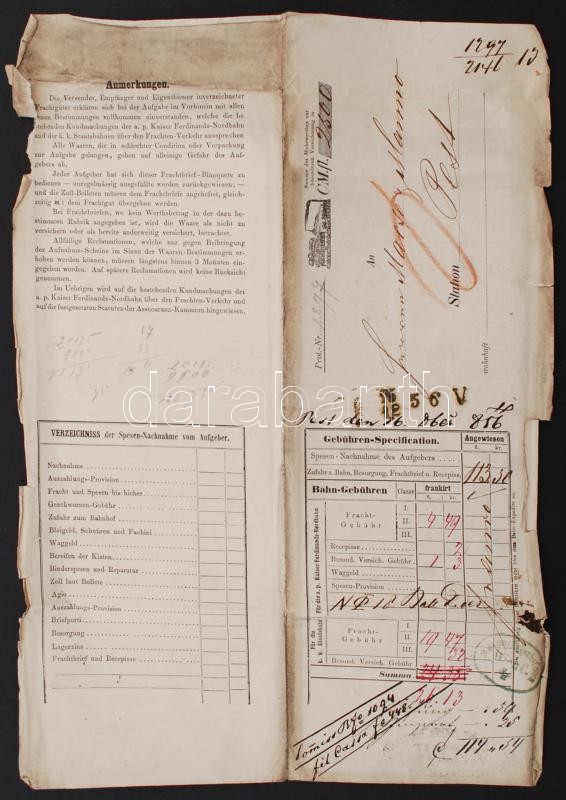 Anmerkungen.
Die Versender, Empfänger und Eigenthümer inverzeichneter
Frachtgüter erklären sich bei der Aufgabe im Vorhinein mit allen
jenen Bestimmungen vollkommen einverstanden, welche die be-
stehenden Kundmachungen der a. p. Kaiser Ferdinands-Nordbahn
und der k. k. Staatsbahnen über den Frachten-Verkehr aussprechen
Alle Waaren, die in schlechter Condition oder Verpackung
zur Aufgabe gelangen, gehen auf alleinige Gefahr des Aufge-
bers ab.
Jeder Aufgeber hat sich dieser Frachtbrief-Blanquete zu
bedienen — unregelmässig ausgefüllte werden zurückgewiesen; —
und die Zoll-Bolleten müssen dem Frachtbriefe angeheftet, gleich-
zeitig mit dem Frachtgut übergeben werden.
Bei Frachtbriefen, wo kein Werthsbetrag in der dazu be-
stimmten Rubrik angegeben ist, wird die Waare als nicht zu
versichern oder als bereits anderweitig versichert, betrachtet.
Allfällige Reclamationen, welche nur gegen Beibringung
der Aufnahms-Scheine im Sinne der Waaren-Bestimmungen er-
hoben werden können, müssen längstens binnen 3 Monaten ein-
gegeben werden. Auf spätere Reclamationen wird keine Rücksicht
genommen.
Im Uebrigen wird auf die bestehenden Kundmachungen des
a. p. Kaiser Ferdinands-Nordbahn über den Frachten-Verkehr und
auf die festgesetzten Statuten der Assecuranz-Kammern hingewiesen.
VERZEICHNISS der Spesen-Nachnahme vom Aufgeber.
Nachnahme
Auszahlungs-Provision
Fracht und Spesen bis hieher
Geschwornen-Gebühr
Zufuhr zum Bahnhof
Bleigeld, Schnüren und Fachini
Waggeld
Bereifen der Kisten
Binderspesen und Reparatur
Zoll laut Bollete
Agio
Auszahlungs-Provision
Briefporti
Besorgung
Lagerzins
Frachtbrief und Recepisse
1297
2146
13
Summe des Mehrwerthes zur
besonderen Versicherung in
C.M. fl. 2500
Prot.-Nr. 1297
An
Station Pest
wohnhaft
56 V
Pest den 16. 856
Gebühren-Specification.
Angewiesen
fl. kr.
Spesen-Nachnahme des Aufgebers
Zufuhr z. Bahn, Besorgung, Frachtbrief u. Recepiss.
113 30
Bahn-Gebühren
Classe
frankirt
fl. kr.
Für die a. p. Kaiser Ferdinands-Nordbahn
Fracht-
Gebühr
I.
II. 4 49
III.
Recepisse 2
Besond. Versich. Gebühr 1 3
Waggeld
Spesen-Provision
Für die k. k. Staatsbahn
Fracht-
Gebühr
I.
II. 19 47
III.
Besond. Versich. Gebühr 32
Summa
26.13
1094
448
54
25
114 54
darabanth